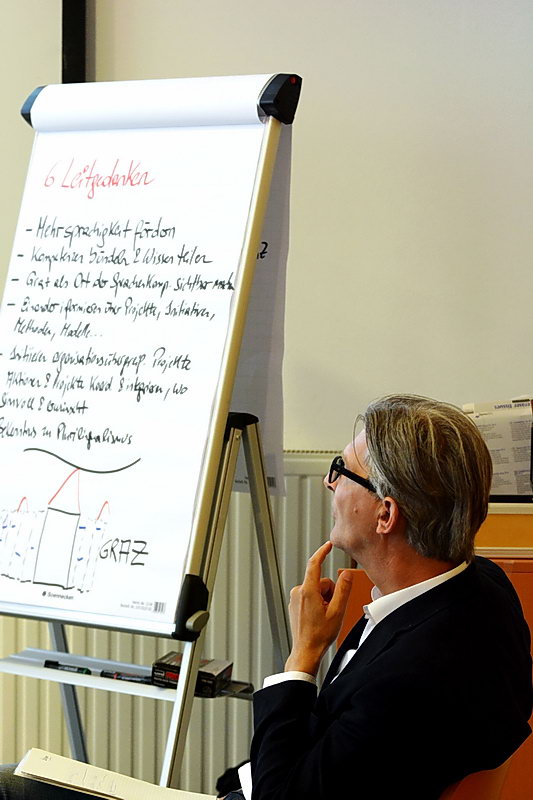 6 Leitgedanken
- Mehrsprachigkeit fördern
- Kompetenzen bündeln & Wissen teilen
- Graz als Ort der Sprachenkomp. sichtbar machen
- Einander informieren über Projekte, Initiativen,
Methoden, Modelle...
- Initiieren organisationsübergreif. Projekte
Aktionen & Projekte koord & integrieren, wo
sinnvoll & erwünscht
Bekenntnis zu Plurilingualismus
GRAZ
Soennecken